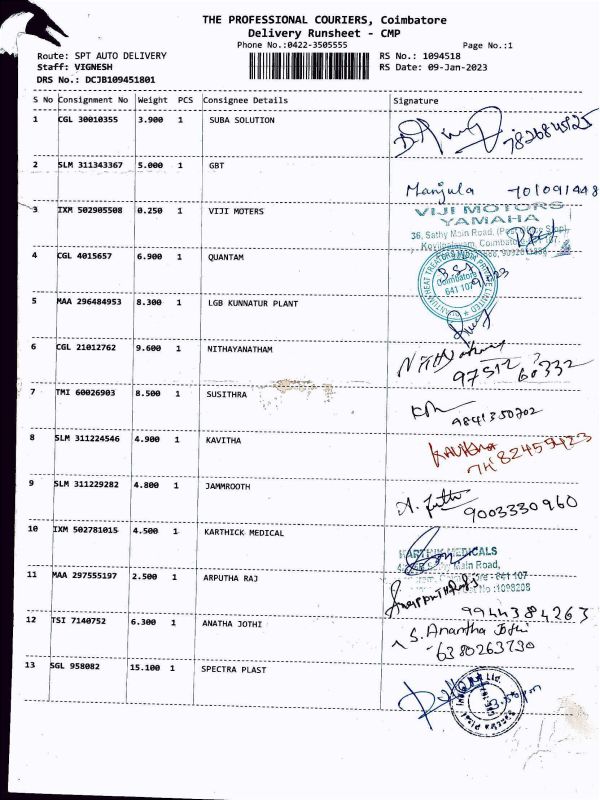 THE PROFESSIONAL COURIERS, Coimbatore
Delivery Runsheet - CMP
Phone No.:0422-3505555
Page No.:1
Route: SPT AUTO DELIVERY
RS No.: 1094518
Staff: VIGNESH
RS Date: 09-Jan-2023
DRS No.: DCJB109451801
S No Consignment No Weight PCS Consignee Details Signature
1 CGL 30010355 3.900 1 SUBA SOLUTION
7826845925
2 SLM 311343367 5.000 1 GBT
Manjula 701091448
3 IXM 502905508 0.250 1 VIJI MOTERS
VIJI MOTORS
YAMAHA
36, Sathy Main Road,
Kovilpalayam, Coimbatore 107.
4 CGL 4015657 6.900 1 QUANTAM
QUANTUM HEAT TREATORS INDIA PRIVATE LIMITED
Coimbatore
641 107
5 MAA 296484953 8.300 1 LGB KUNNATUR PLANT
6 CGL 21012762 9.600 1 NITHAYANATHAM
97512 60332
7 TMI 60026903 8.500 1 SUSITHRA
9841350202
8 SLM 311224546 4.900 1 KAVITHA
KAVITHA
7482459423
9 SLM 311229282 4.800 1 JAMMROOTH
9003330960
10 IXM 502781015 4.500 1 KARTHICK MEDICAL
KARTHIK MEDICALS
Main Road,
641 107
No :1098208
11 MAA 297555197 2.500 1 ARPUTHA RAJ
9944384263
12 TSI 7140752 6.300 1 ANATHA JOTHI
S. Anantha Jothi
6380263730
13 SGL 958082 15.100 1 SPECTRA PLAST